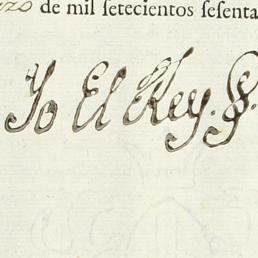 de mil ſetecientos ſeſenta
Yo El Rey.